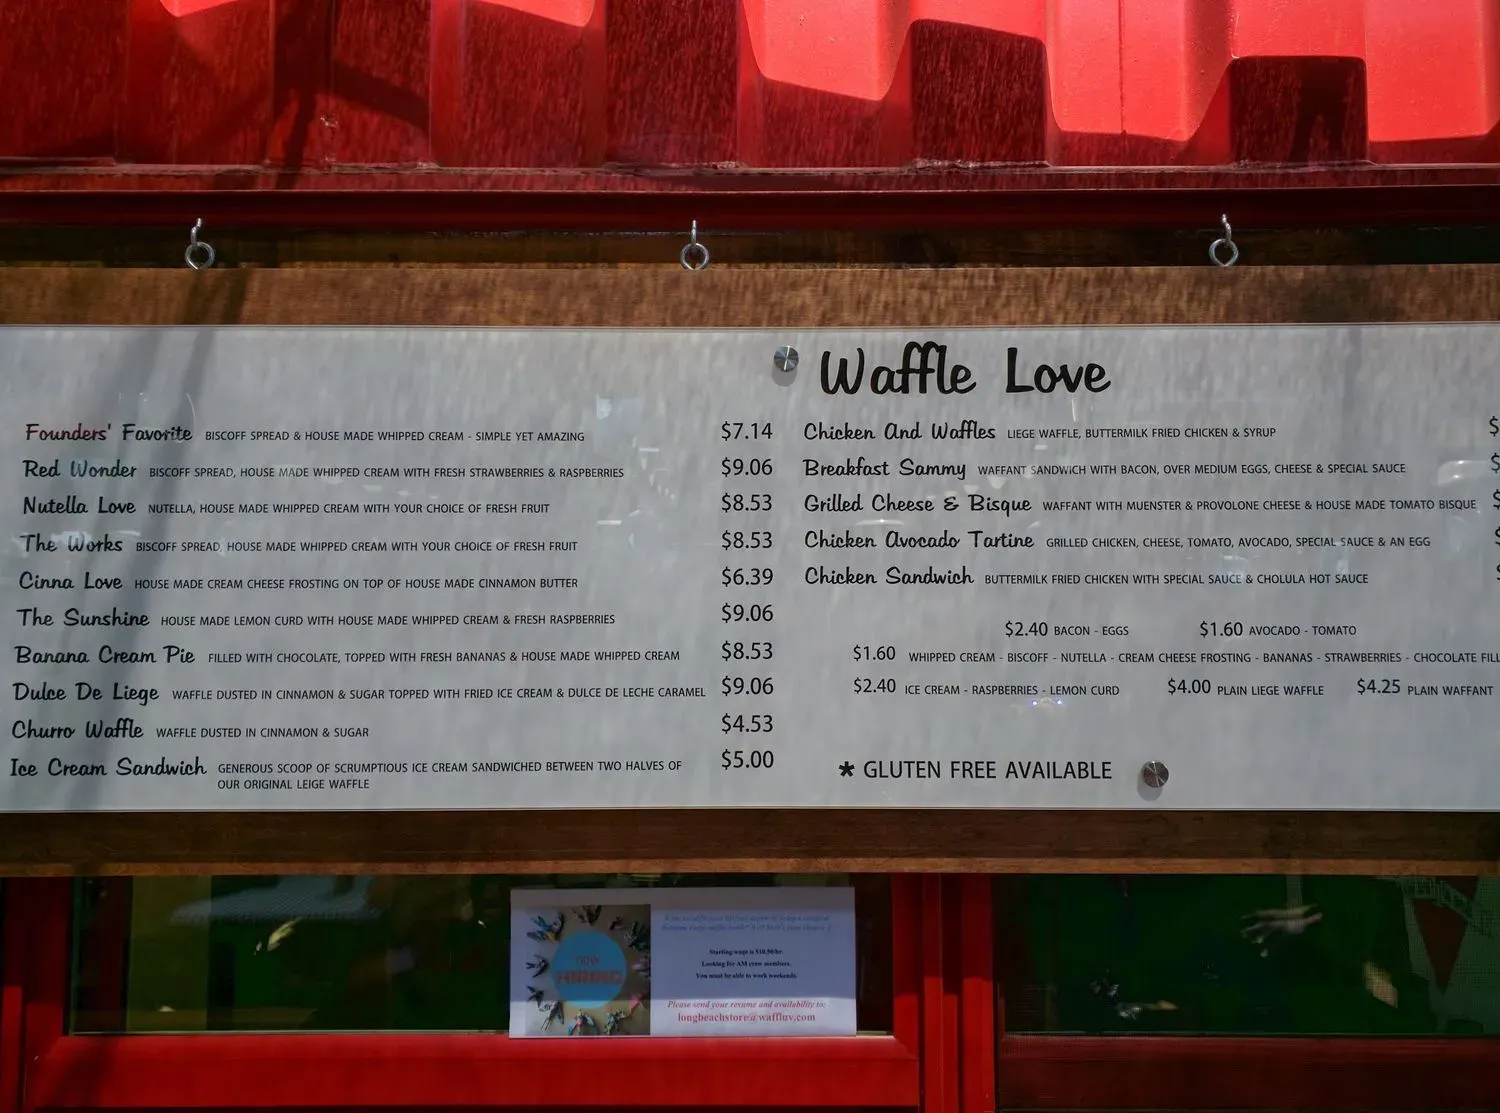 Waffle Love
Founders' Favorite BISCOFF SPREAD & HOUSE MADE WHIPPED CREAM - SIMPLE YET AMAZING $7.14
Red Wonder BISCOFF SPREAD, HOUSE MADE WHIPPED CREAM WITH FRESH STRAWBERRIES & RASPBERRIES $9.06
Nutella Love NUTELLA, HOUSE MADE WHIPPED CREAM WITH YOUR CHOICE OF FRESH FRUIT $8.53
The Works BISCOFF SPREAD, HOUSE MADE WHIPPED CREAM WITH YOUR CHOICE OF FRESH FRUIT $8.53
Cinna Love HOUSE MADE CREAM CHEESE FROSTING ON TOP OF HOUSE MADE CINNAMON BUTTER $6.39
The Sunshine HOUSE MADE LEMON CURD WITH HOUSE MADE WHIPPED CREAM & FRESH RASPBERRIES $9.06
Banana Cream Pie FILLED WITH CHOCOLATE, TOPPED WITH FRESH BANANAS & HOUSE MADE WHIPPED CREAM $8.53
Dulce De Liege WAFFLE DUSTED IN CINNAMON & SUGAR TOPPED WITH FRIED ICE CREAM & DULCE DE LECHE CARAMEL $9.06
Churro Waffle WAFFLE DUSTED IN CINNAMON & SUGAR $4.53
Ice Cream Sandwich GENEROUS SCOOP OF SCRUMPTIOUS ICE CREAM SANDWICHED BETWEEN TWO HALVES OF $5.00
OUR ORIGINAL LEIGE WAFFLE
Chicken And Waffles LIEGE WAFFLE, BUTTERMILK FRIED CHICKEN & SYRUP $
Breakfast Sammy WAFFANT SANDWICH WITH BACON, OVER MEDIUM EGGS, CHEESE & SPECIAL SAUCE $
Grilled Cheese & Bisque WAFFANT WITH MUENSTER & PROVOLONE CHEESE & HOUSE MADE TOMATO BISQUE $
Chicken Avocado Tartine GRILLED CHICKEN, CHEESE, TOMATO, AVOCADO, SPECIAL SAUCE & AN EGG
Chicken Sandwich BUTTERMILK FRIED CHICKEN WITH SPECIAL SAUCE & CHOLULA HOT SAUCE
$2.40 BACON - EGGS $1.60 AVOCADO - TOMATO
$1.60 WHIPPED CREAM - BISCOFF - NUTELLA - CREAM CHEESE FROSTING - BANANAS - STRAWBERRIES - CHOCOLATE FILL
$2.40 ICE CREAM - RASPBERRIES - LEMON CURD $4.00 PLAIN LIEGE WAFFLE $4.25 PLAIN WAFFANT
* GLUTEN FREE AVAILABLE
now
HIRING
Starting wage is $10.50/hr.
Looking for AM crew members.
You must be able to work weekends.
Please send your resume and availability to:
longbeachstore@waffluv.com